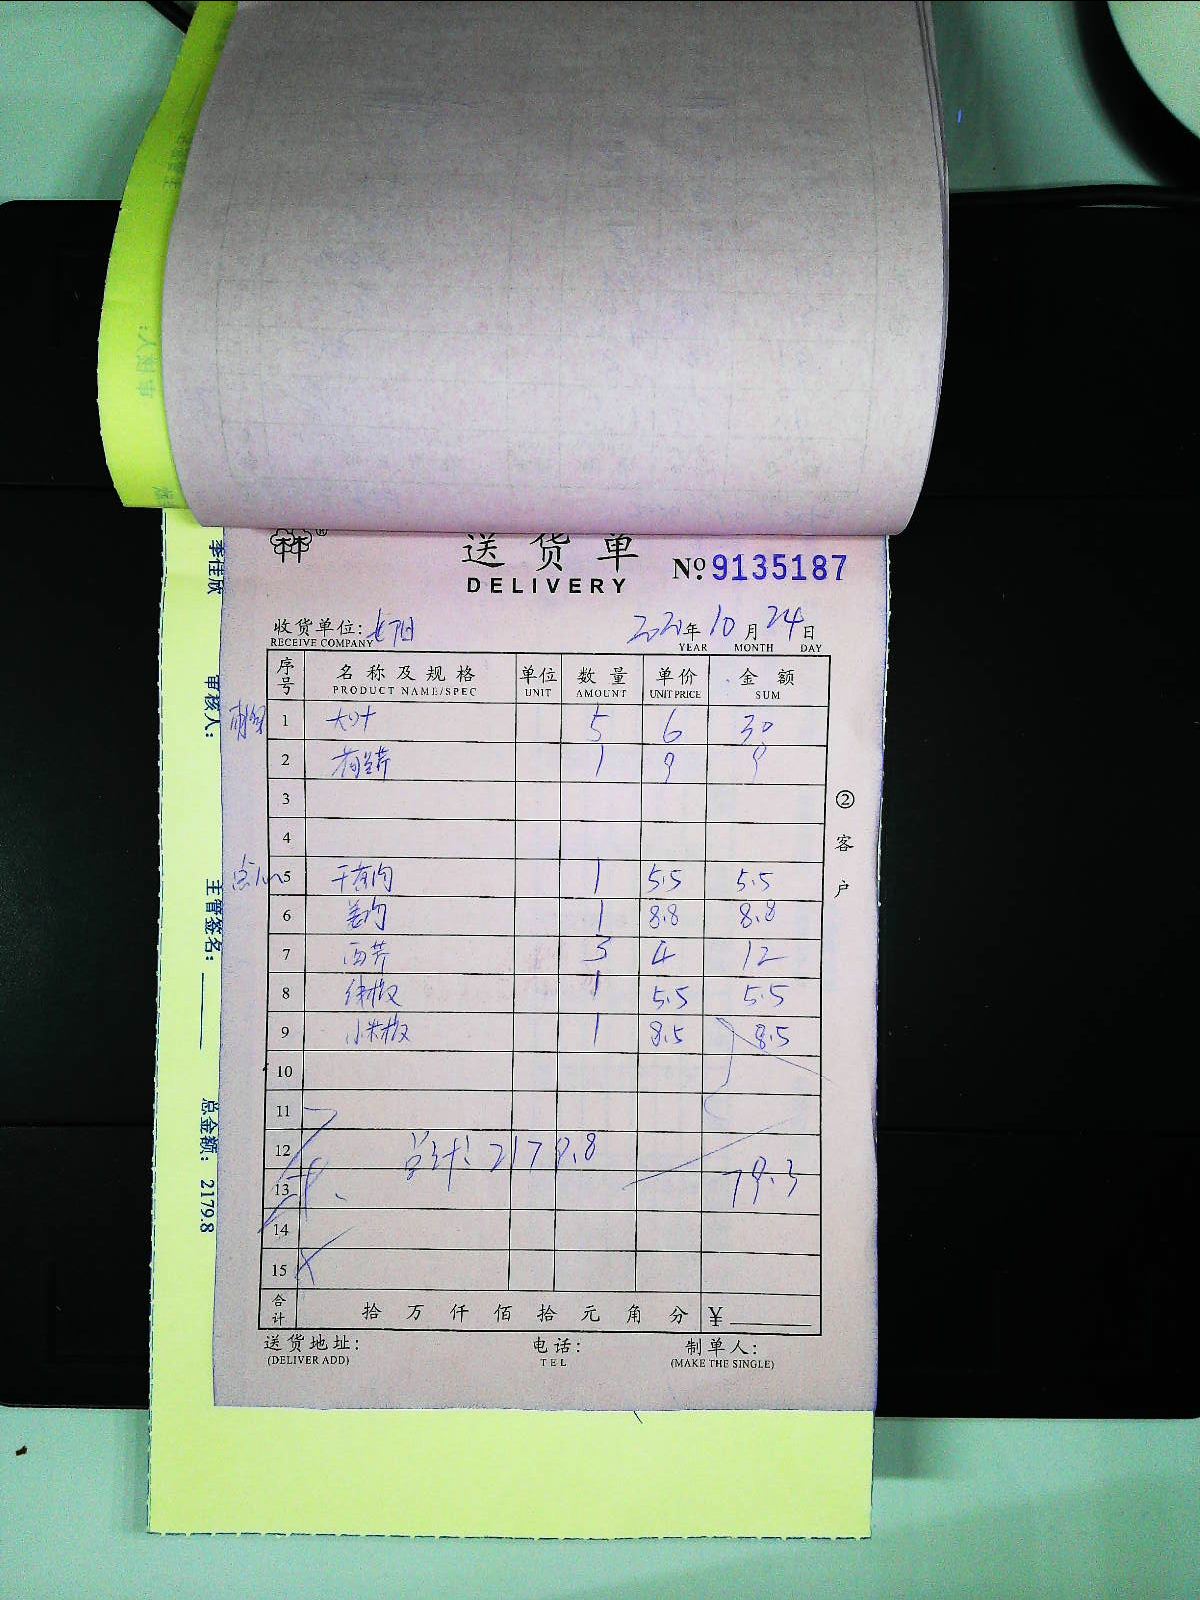 送货单
DELIVERY
№ 9135187
收货单位:
RECEIVE COMPANY
2021年10月24日
YEAR MONTH DAY
序号 名称及规格 单位 数量 单价 金额
PRODUCT NAME/SPEC UNIT AMOUNT UNIT PRICE SUM
1 大叶 5 6 30
2 1 9 9
3
4
点心 5 1 5.5 5.5
6 姜肉 1 8.8 8.8
7 西芹 3 4 12
8 1 5.5 5.5
9 小米椒 1 8.5 8.5
10
11
12 总计: 2179.8
13 79.3
14
15
合计 拾 万 仟 佰 拾 元 角 分 ¥
送货地址: 电话: 制单人:
(DELIVER ADD) TEL (MAKE THE SINGLE)
② 客户
李佳欣
审核人:
主管签名:
总金额: 2179.8